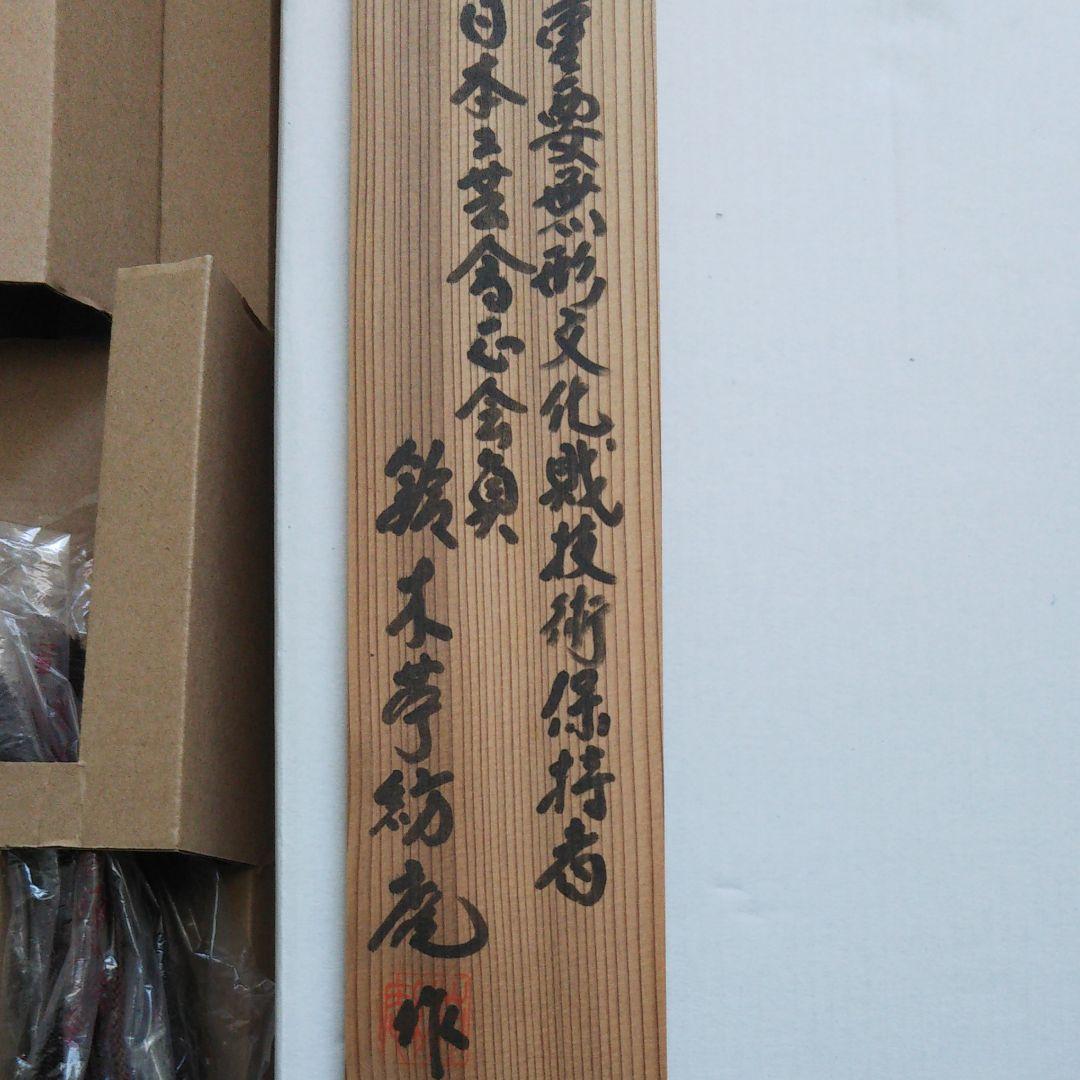 重要無形文化財技術保持者
日本工芸会正会員
鈴木苧紡庵
作